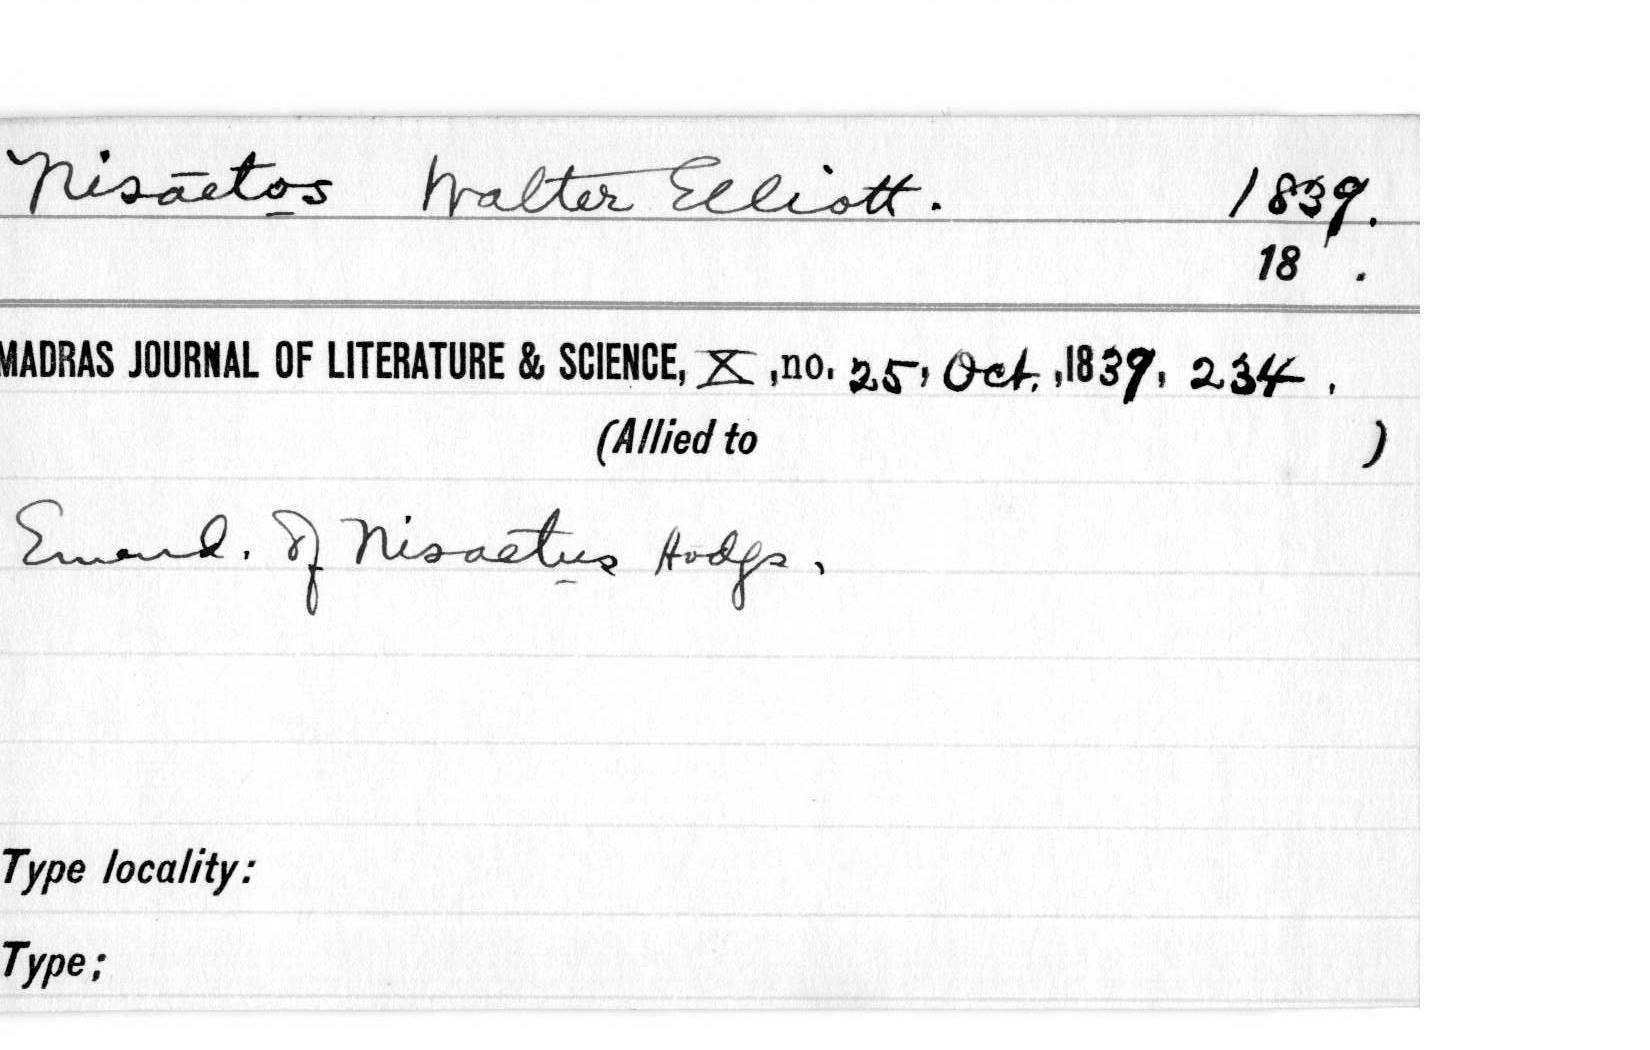 Nisāetos Walter Elliott. 1839.
18 .
MADRAS JOURNAL OF LITERATURE & SCIENCE, X, no. 25, Oct., 1839, 234.
(Allied to )
Emend. of Nisaetus Hodgs.
Type locality:
Type;